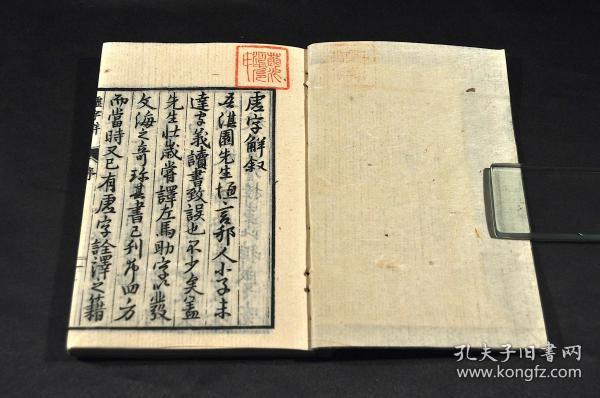 虛字解叙
吾淇園先生恒言邦人小子未
達字義讀書致誤也不少矣蓋
先生壮歲嘗譯左馬助字以發
文海之奇珎其書已刊布四方
而當時又已有虛字詮譯之籍
虛字解
序
孔夫子旧书网
www.kongfz.com